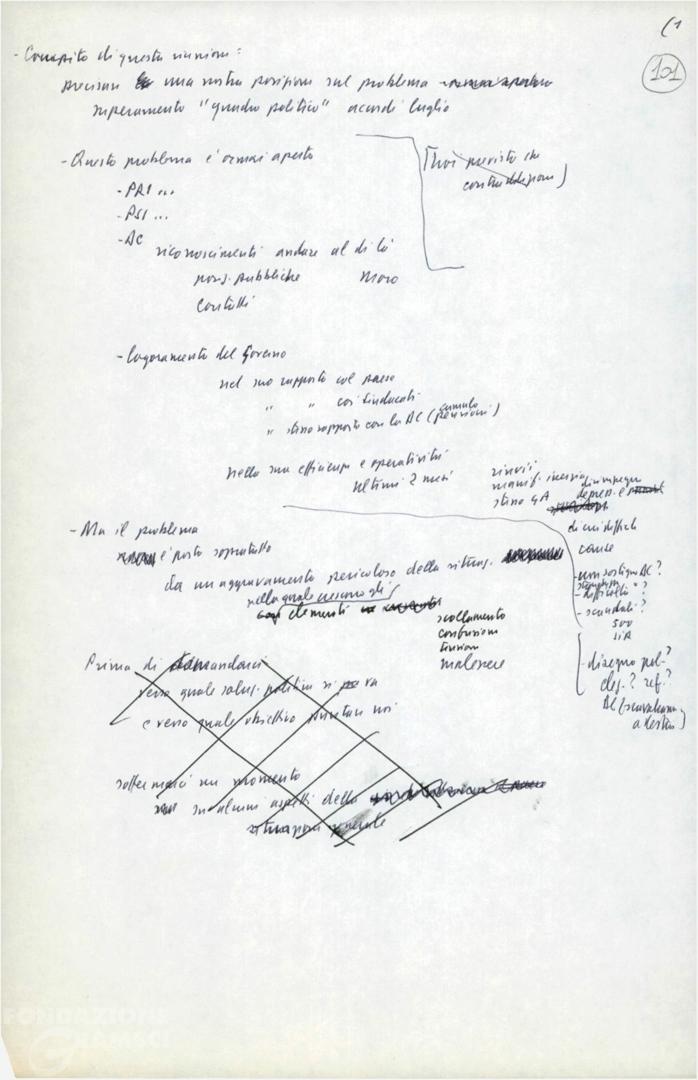 (1
101
- Compito di questa riunione:
precisare una nostra posizione sul problema
superamento "quadro politico" accordi luglio
- Questo problema è ormai aperto
- PRI ...
- PSI ...
- DC
riconoscimenti andare al di là
pos. pubbliche Moro
contatti
- logoramento del Governo
nel suo rapporto col paese
" " coi sindacati
" stesso rapporto con la DC (cumulo pensioni)
nella sua efficienza e operatività
ultimi 2 mesi
rinvii
manif. inerzia
- Ma il problema
è posto sopratutto
da un aggravamento pericoloso della situaz.
nella quale crescono gli
elementi
scollamento
confusione
tensioni
malessere
di cui difficili
cause
- non sostegno DC?
- difficoltà?
- scandali?
SID
- disegno pol.?
elez.? ref.?
DC (scavalcam.
a destra)
Prima di domandarci
verso quale soluz. politica si va
e verso quale obiettivo puntare noi
soffermarci un momento
su alcuni aspetti della
situazione generale
FONDAZIONE
GRAMSCI